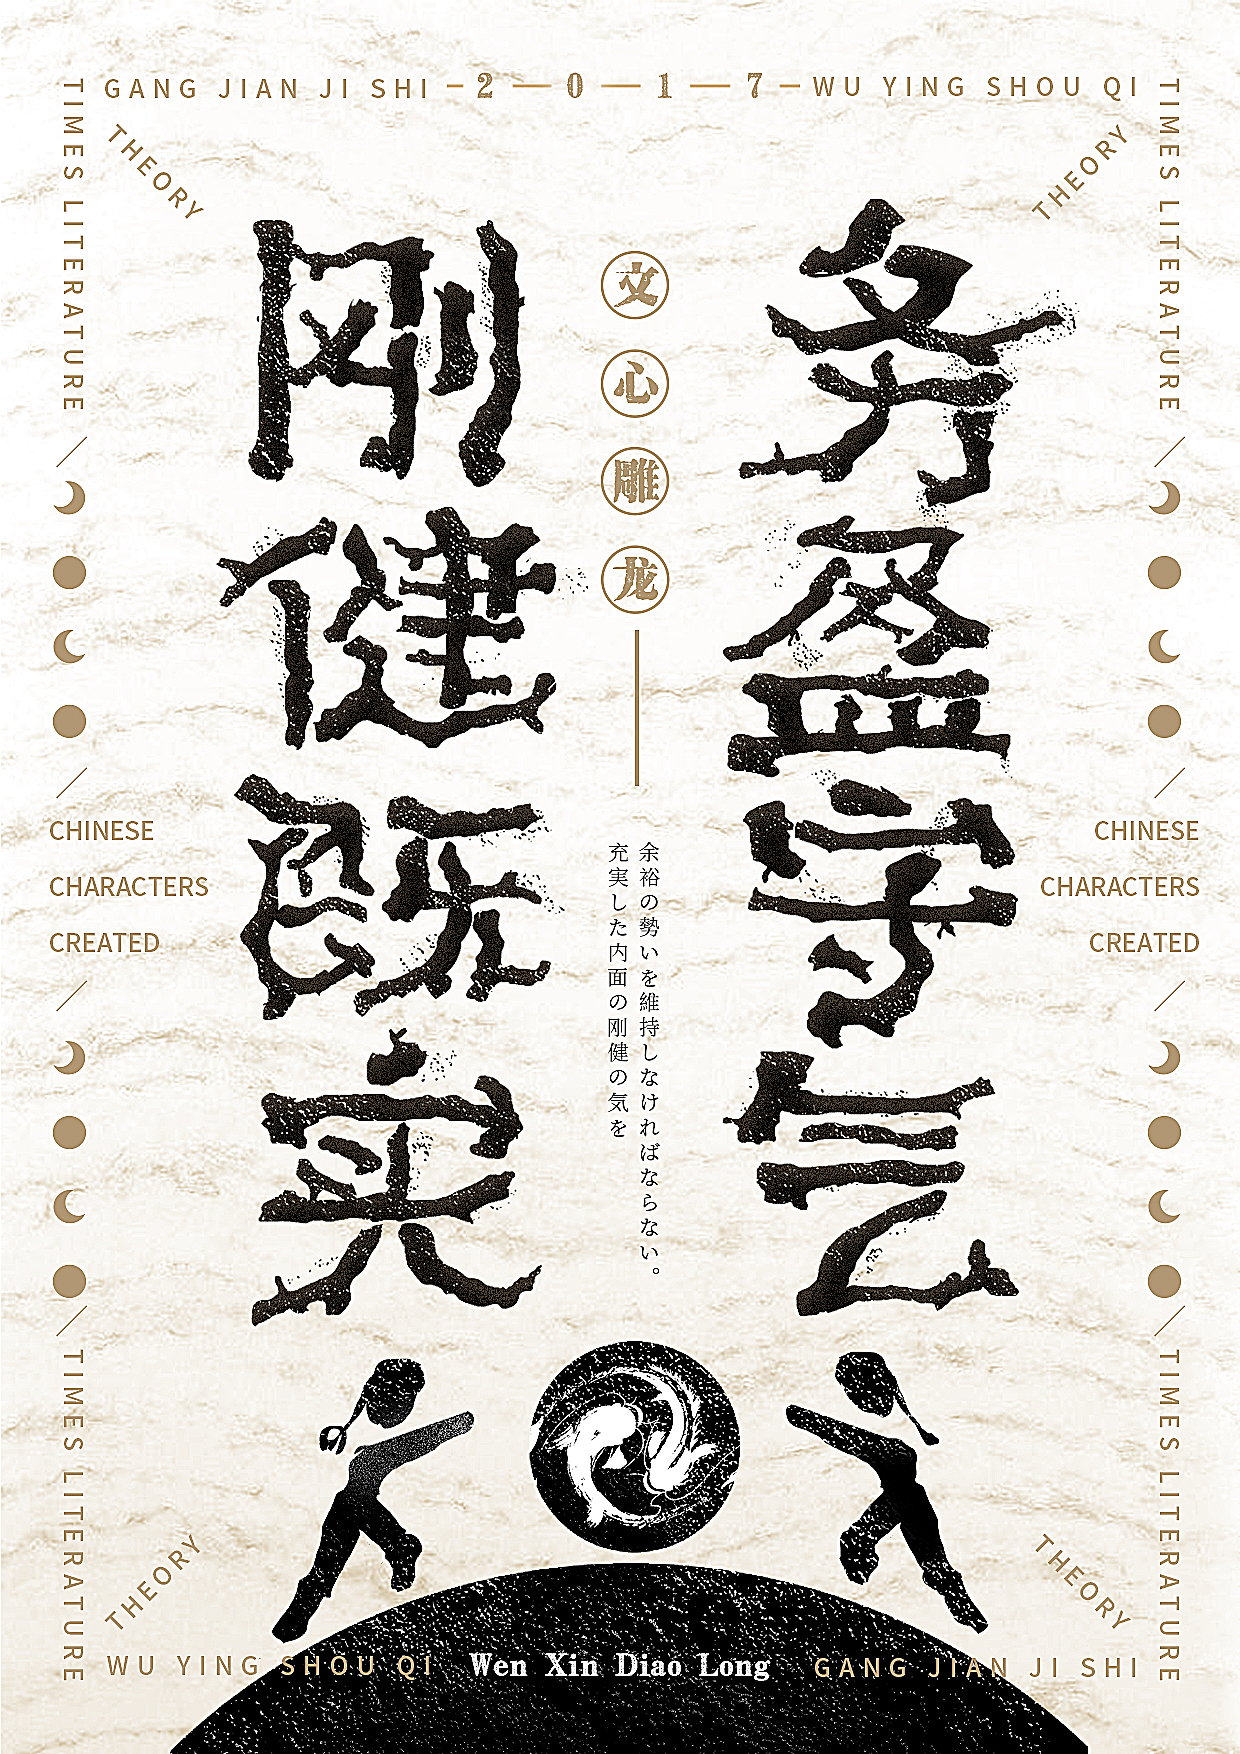 GANG JIAN JI SHI — 2 — 0 — 1 — 7 — WU YING SHOU QI
TIMES LITERATURE
TIMES LITERATURE
THEORY
THEORY
务盈守气
文心雕龙
刚健既实
余裕の勢いを維持しなければならない。
充実した内面の剛健の気を
CHINESE
CHARACTERS
CREATED
CHINESE
CHARACTERS
CREATED
TIMES LITERATURE
TIMES LITERATURE
THEORY
THEORY
WU YING SHOU QI
Wen Xin Diao Long
GANG JIAN JI SHI